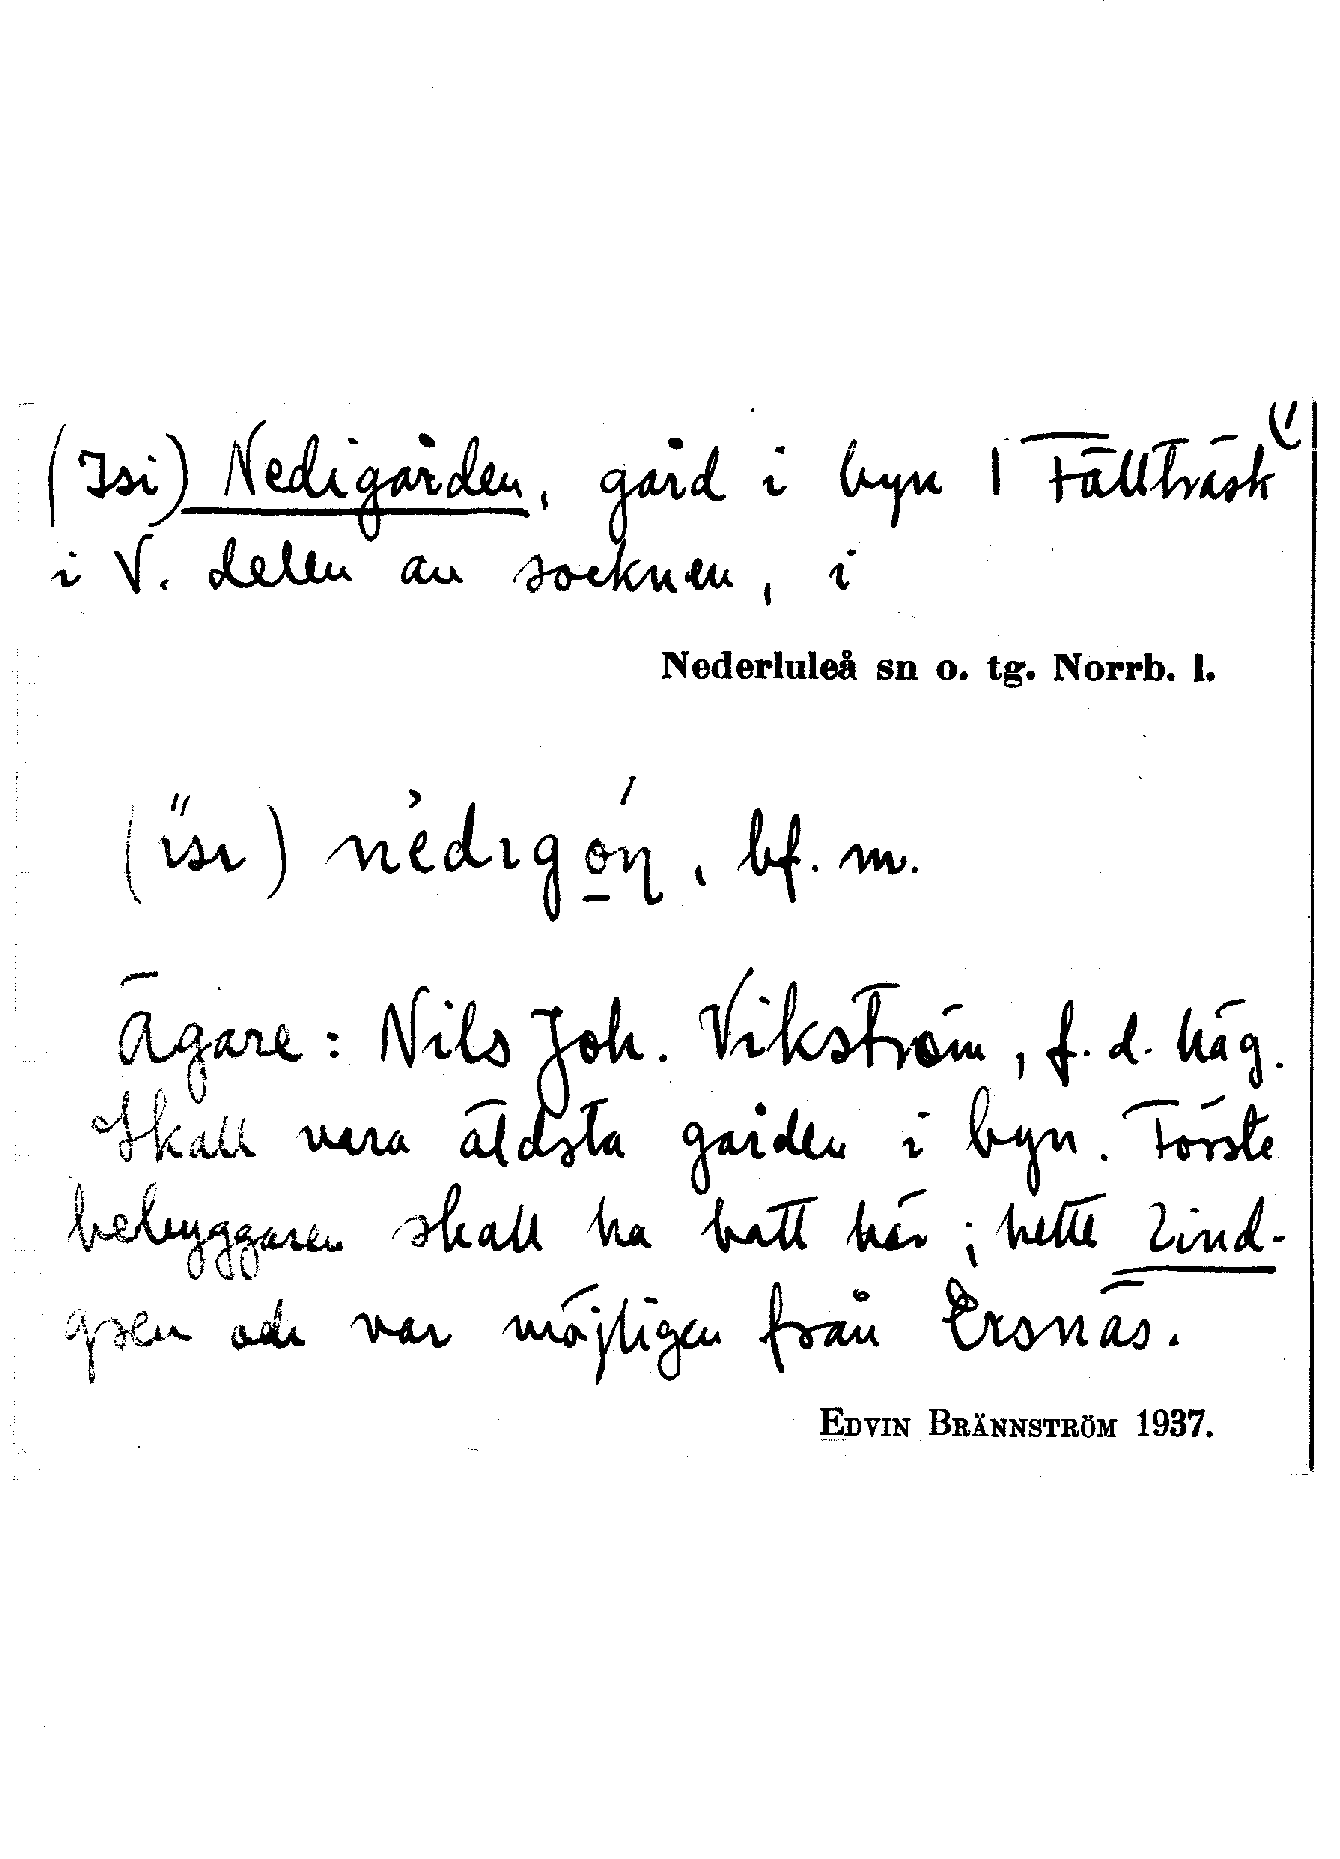 (Isi) Nedigården, gård i byn 1 Fällträsk
i V. delen av socknen, i
Nederluleå sn o. tg. Norrb. l.
(ìsı) nèdıgó̲ɳ, bf. m.
Ägare: Nils Joh. Vikström, f. d. häg.
Skall vara äldsta gården i byn. Förste
bebyggaren skall ha bott här; hette Lind-
gren och var möjligen från Ersnäs.
EDVIN BRÄNNSTRÖM 1937.